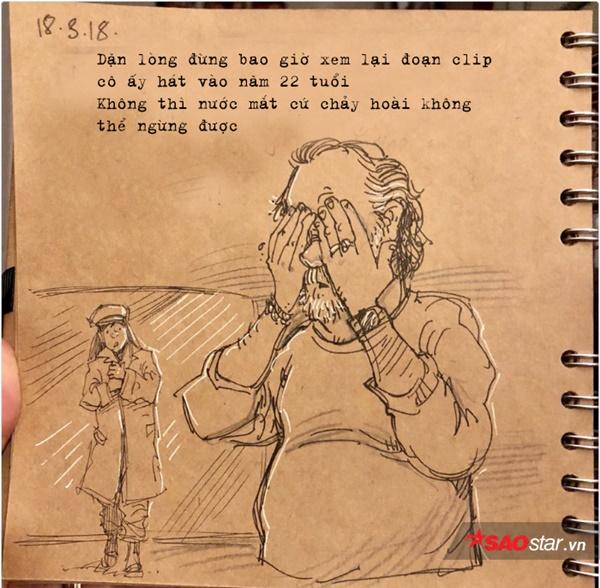 18.3.18.
Dặn lòng đừng bao giờ xem lại đoạn clip
cô ấy hát vào năm 22 tuổi
Không thì nước mắt cứ chảy hoài không
thể ngừng được
SAOstar.vn